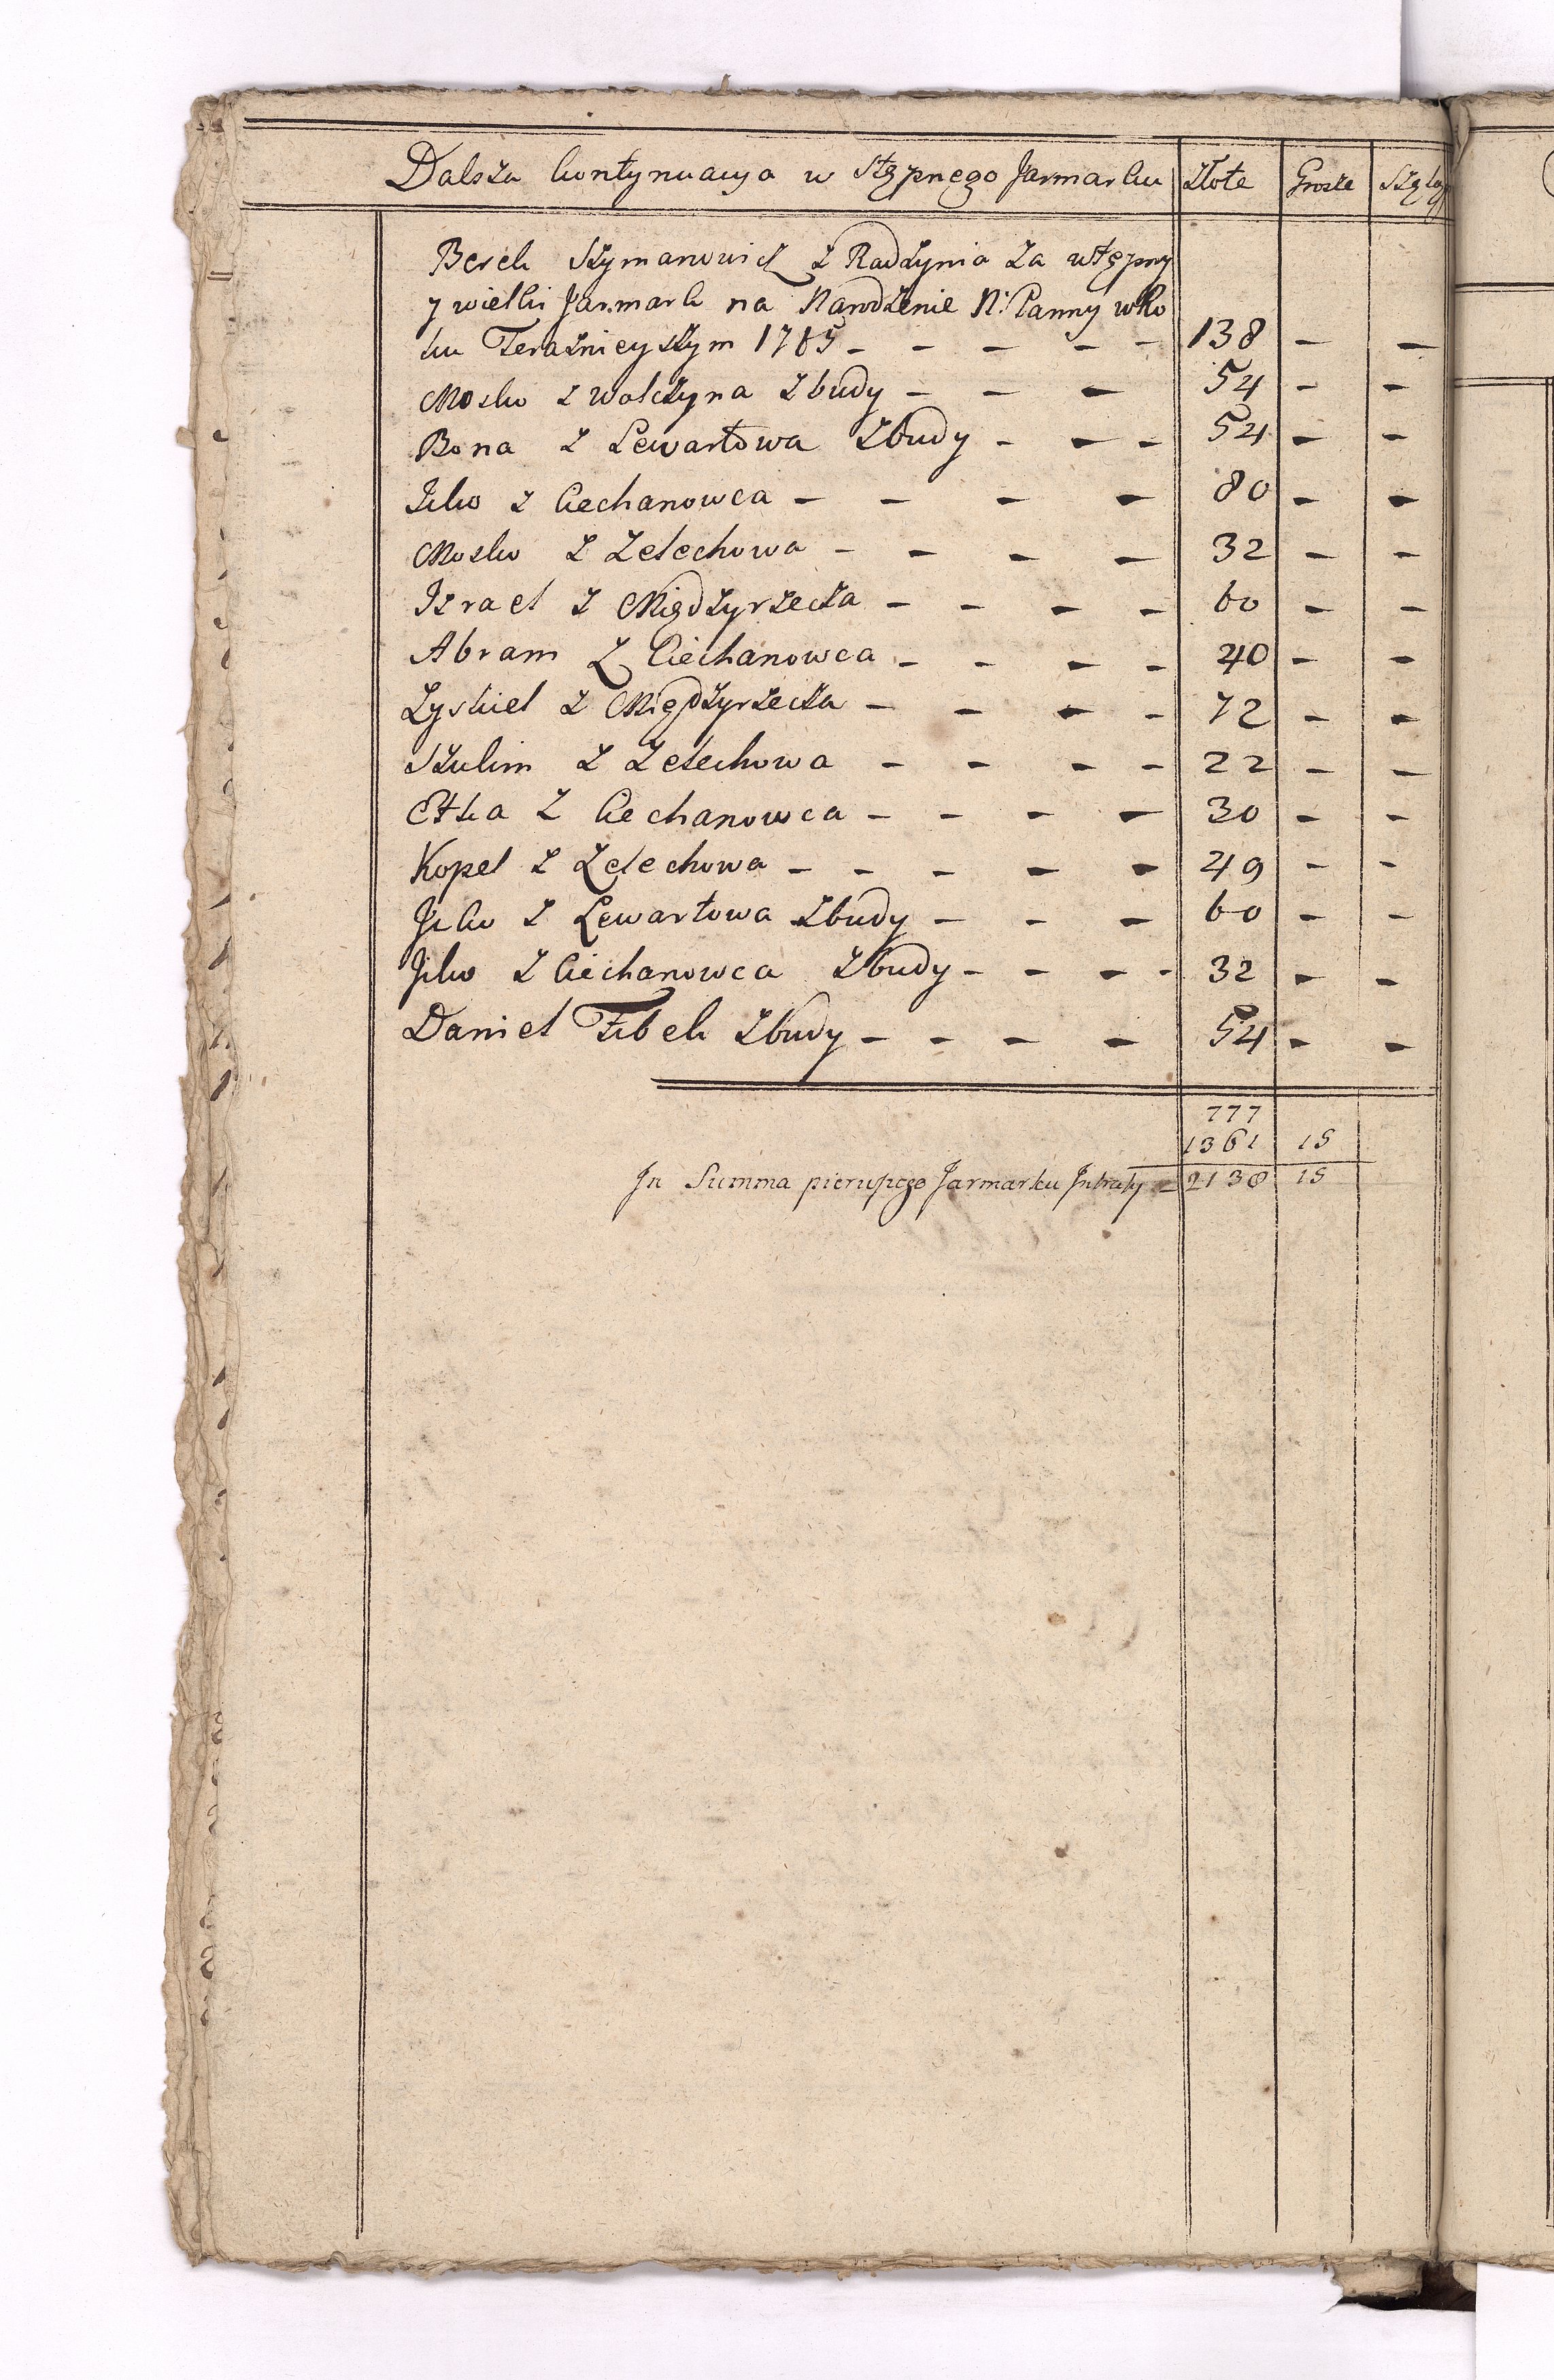 Dalsza kontynuacya w stępnego Jarmarku Złote Grosze Szeląg
Berek Szymanowicz z Radzynia za wstępny
y wielki Jarmark na Narodzenie N: Panny w Ro
ku Teraznieyszym 1785 - - - - - 138 - -
Mosko z Wolczyna z budy - - - 54 - -
Bona z Lewartowa z budy - - - 54 - -
Icko z Ciechanowca - - - - 80 - -
Mosko z Zelechowa - - - - 32 - -
Izrael z Międzyrzecza - - - - 60 - -
Abram z Ciechanowca - - - - 40 - -
Zyskiel z Międzyrzecza - - - - 72 - -
Szulim z Zelechowa - - - - 22 - -
Etka z Ciechanowca - - - - 30 - -
Kopel z Zelechowa - - - - - 49 - -
Icko z Lewartowa z budy - - - 60 - -
Icko z Ciechanowca z budy - - - - 32 - -
Daniel z budy - - - - 54 - -
777
1361 15
In Summa pierwszego Jarmarku Intraty = 2138 15